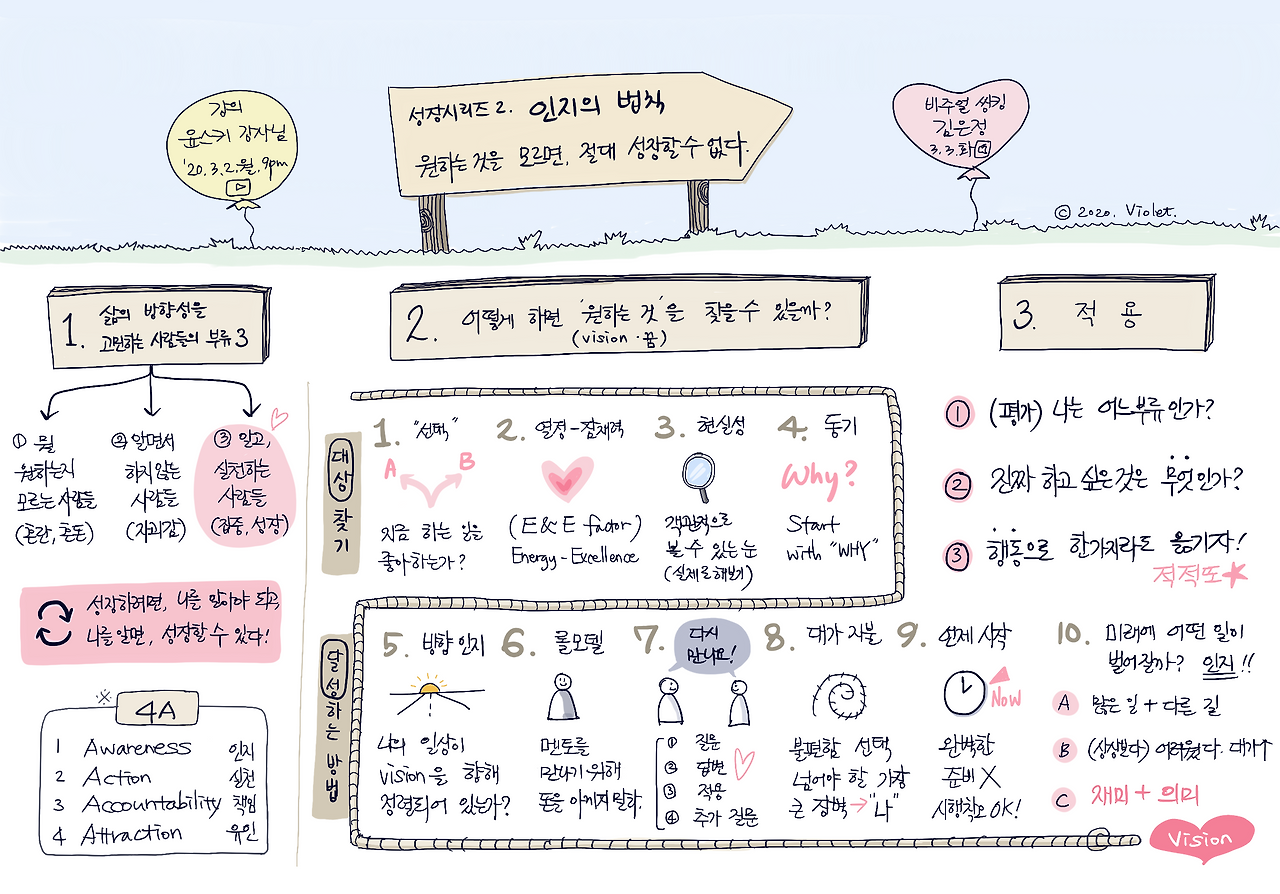 강의
윤스키 강사님
'20.3.2.월.9pm
성장시리즈 2. 인지의 법칙
원하는 것을 모르면, 절대 성장할 수 없다.
비주얼 씽킹
김은정
3.3.화
© 2020. Violet.
1. 삶의 방향성을
고민하는 사람들의 부류 3
① 뭘
원하는지
모르는 사람들
(혼란, 혼돈)
② 알면서
하지 않는
사람들
(자괴감)
③ 알고,
실천하는
사람들
(집중, 성장)
성장하려면, 나를 알아야 되고,
나를 알면, 성장할 수 있다!
4A
1 Awareness 인지
2 Action 실천
3 Accountability 책임
4 Attraction 유인
2. 어떻게 하면 '원하는 것'을 찾을 수 있을까?
(vision · 꿈)
대상 찾기
1. "선택"
A B
지금 하는 일을
좋아하는가?
2. 열정-잠재력
(E&E factor)
Energy-Excellence
3. 현실성
객관적으로
볼 수 있는 눈
(실제로 해보기)
4. 동기
Why?
Start
with "WHY"
달성하는 방법
5. 방향 인지
나의 일상이
vision을 향해
정렬되어 있는가?
6. 롤모델
멘토를
만나기 위해
돈을 아끼지 말라.
7. 다시
만나요!
① 질문
② 답변
③ 적용
④ 추가 질문
8. 대가 지불
불편함 선택
넘어야 할 가장
큰 장벽 → "나"
9. 언제 시작
Now
완벽한
준비 X
시행착오 OK!
10. 미래에 어떤 일이
벌어질까? 인지!!
A 많은 일 + 다른 길
B (상상보다) 어려웠다. 대가↑
C 재미 + 의미
Vision
3. 적용
① (평가) 나는 어느 부류인가?
② 진짜 하고 싶은 것은 무엇인가?
③ 행동으로 한가지라도 옮기자!
적적또